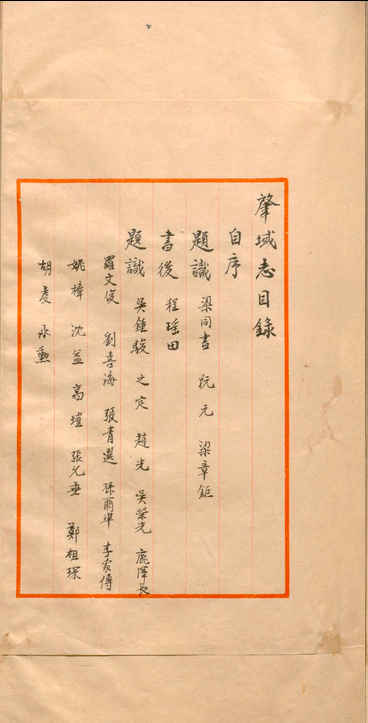 肇域志目錄
自序
題識 梁同書 阮元 梁章鉅
書後 程瑤田
題識 吳鍾駿 之定 趙光 吳榮光 鹿澤長
羅文俊 劉喜海 張青選 孫爾準 李家傳
姚樟 沈益 高塏 張允垂 鄭祖琛
胡虔 永勳